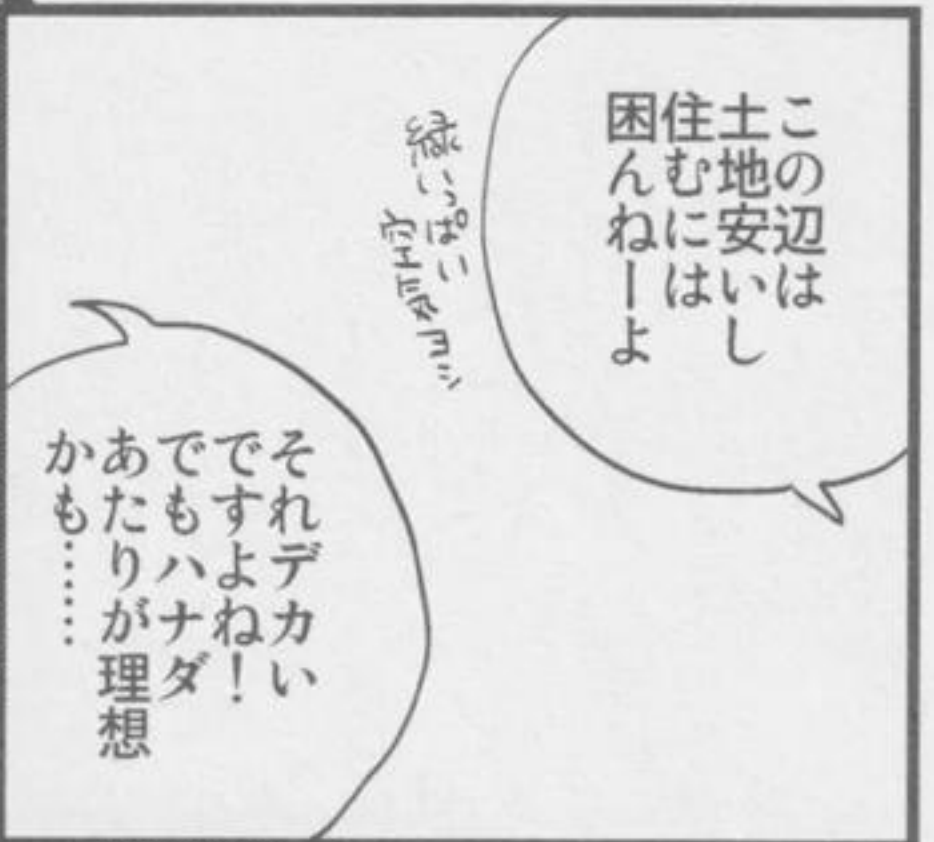 この辺は
土地安いし
住むには
困んねーよ
緑いっぱい
空気ヨシ
それデカい
ですよね！
でもハナダ
あたりが理想
かも……